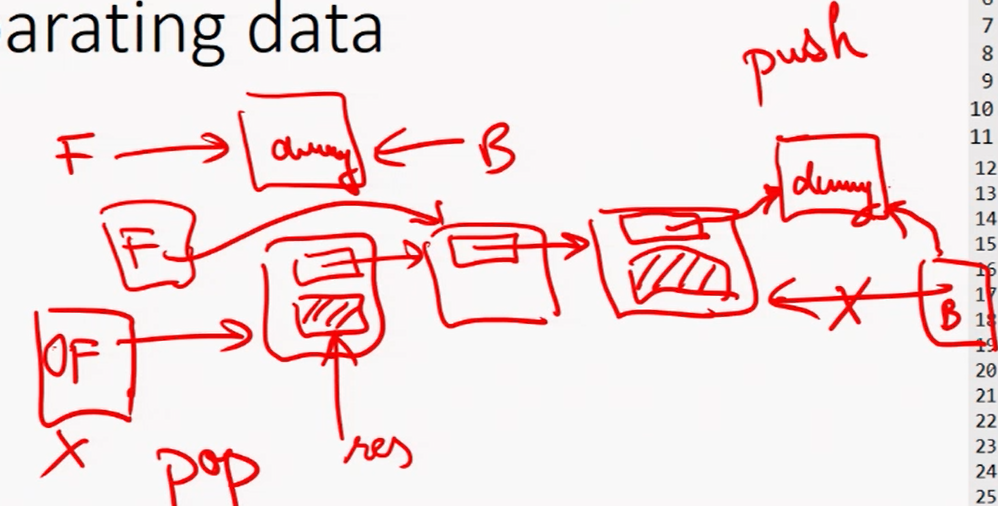 arating data
push
F dummy B
dummy
F
B
OF
X
X
pop
res
7
8
9
10
11
12
13
14
15
16
17
18
19
20
21
22
23
24
25